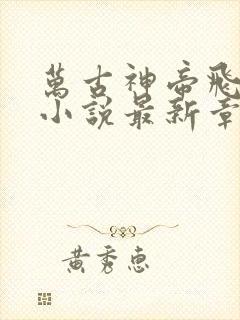 萬古神帝飛
小說最新章
黃秀惠